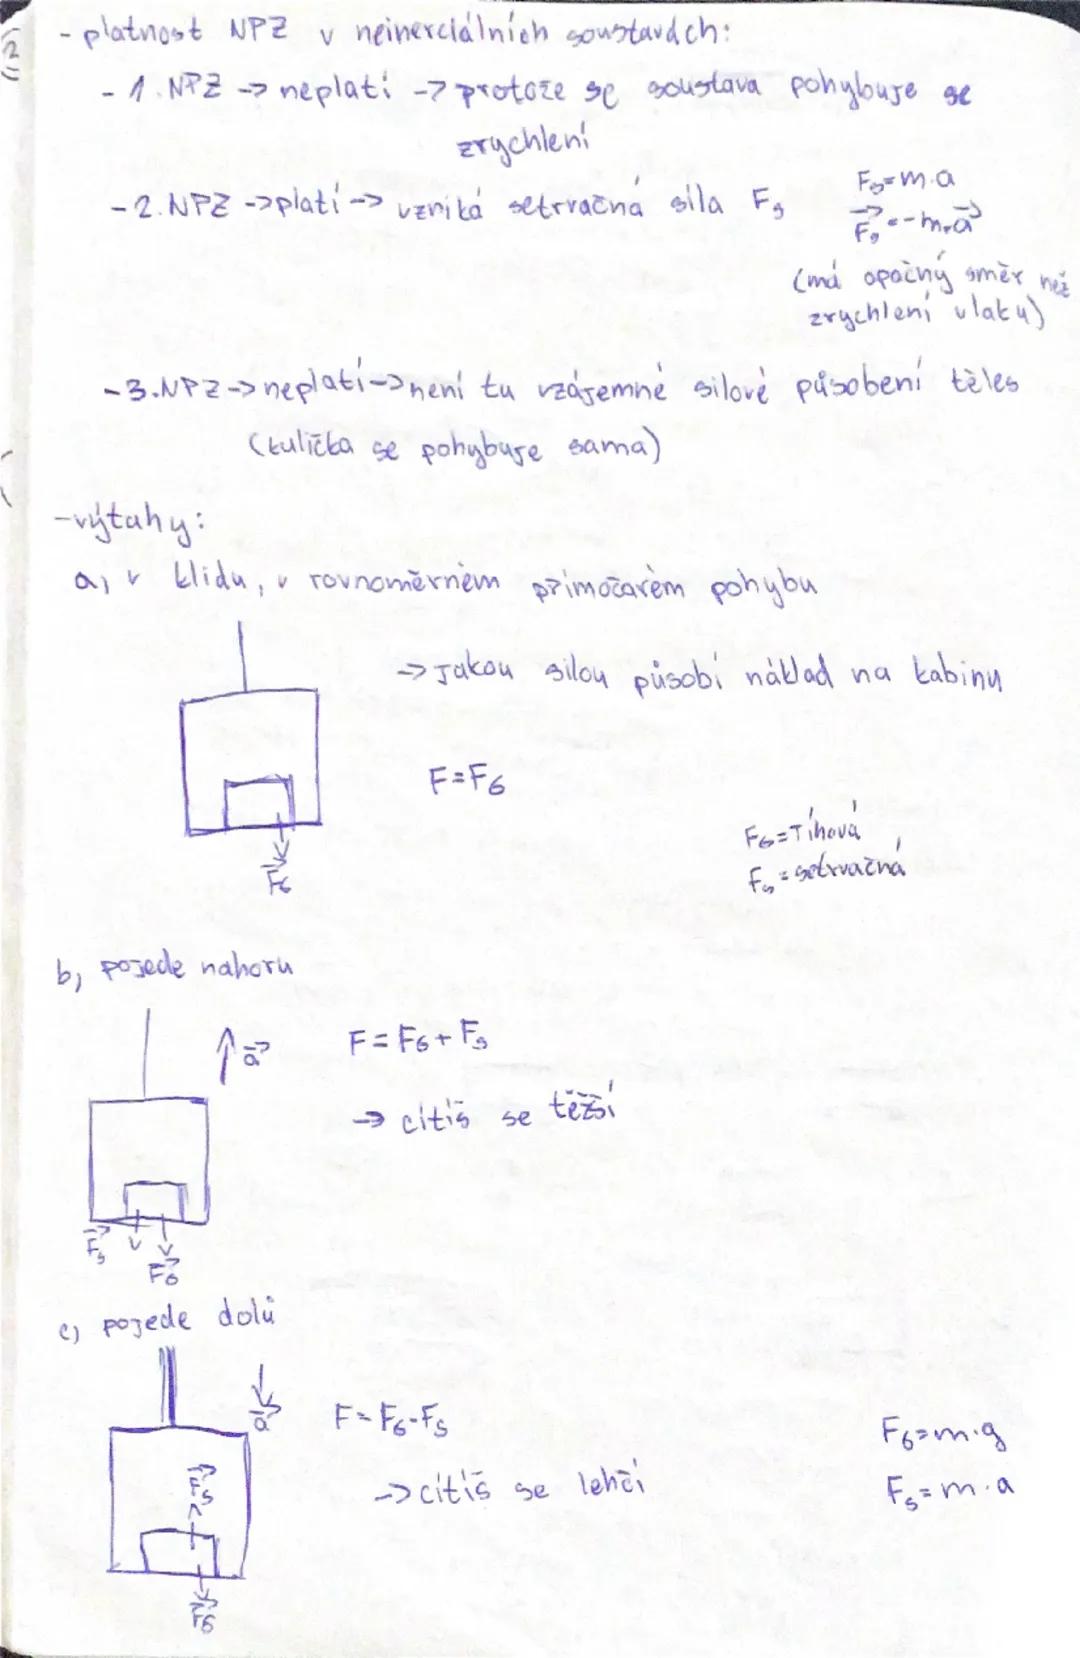 2
- platnost NPZ v neinerciálních soustavách:
- 1. NPZ -> neplatí -> protože se soustava pohybuje se
zrychlení
- 2. NPZ -> platí -> vzniká setrvačná síla Fs
Fs = m.a
Fs = -m.a
(má opačný směr než
zrychlení vlaku)
- 3. NPZ -> neplatí -> není tu vzájemné silové působení těles
(kulička se pohybuje sama)
- výtahy:
a) v klidu, v rovnoměrném přímočarém pohybu
-> jakou silou působí náklad na kabinu
F = FG
FG = Tíhová
Fs = setrvačná
FG
b) pojede nahoru
a
F = FG + Fs
-> cítíš se těžší
Fs
FG
c) pojede dolů
a
F = FG - Fs
FG = m.g
-> cítíš se lehčí
Fs = m.a
Fs
FG